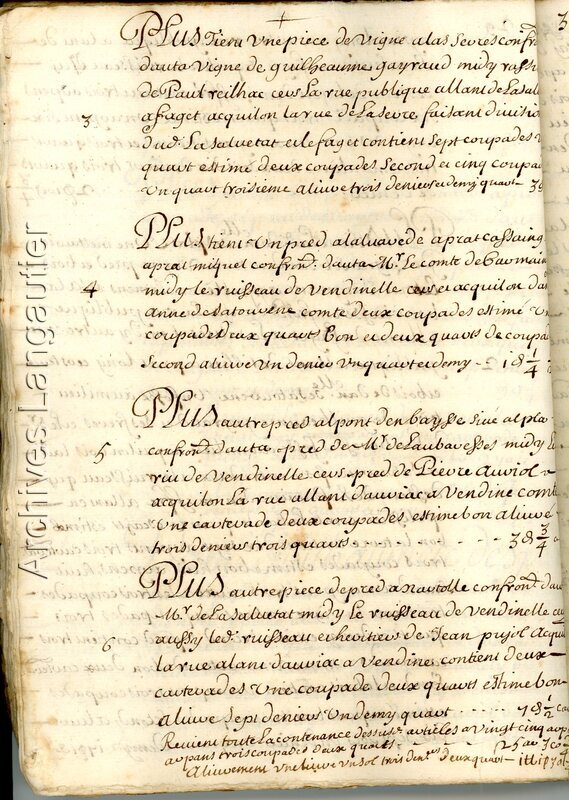 PLus Tient Une piece de Vigne a las Sevres confrô
dauta Vigne de guilheaume gayraud midy
de Paul reilhac cers La rue publique allant de Lasal
a faget acquilon la rue de Lasevre, faisant division
3
dud. La salvetat et le faget contient sept coupades
quart estimé deux coupades second et cinq coupad
Un quart troisieme alivre trois deniers et demy quart
PLus tient Un pred a prat cassaing
a prat miquel confrond. dauta Mr. Le comte de
4
midy le ruisseau de Vendinelle cers et acquilon da
anne de Latour contc deux coupades estimé
coupade deux quarts bon et deux quarts de coupa
second alivre Un denier Un quart et demy - 1 d 1/4
PLus autre pred al pont den baysse sive al pla
confrond. dauta pred de Mr. de midy Le
5
riu de Vendinelle cers pred de Pierre auriol
acquilon La rue allant dauriac a Vendine
Une cartevade deux coupades estime bon alivre
trois deniers trois quarts - - - 3 d 3/4
PLus autre piece de pred a nautolle confrond dau
Mr. de La salvetat midy Le ruisseau de Vendinelle
aussy led. ruisseau et heritiers de Jean pujol acqui
6
la rue alant dauriac a Vendine contient deux
cartevades Une coupade deux quarts estime bon
alivre sept deniers Un demy quart - - - 7 d 1/2
Revient toute La contenance dessus. articles a Vingt cinq arp
arpans trois coupades deux quarts - - - 25 ar 3 co
Alivrement Une livre Un sol trois den.rs deux quart
Archives-Langautier